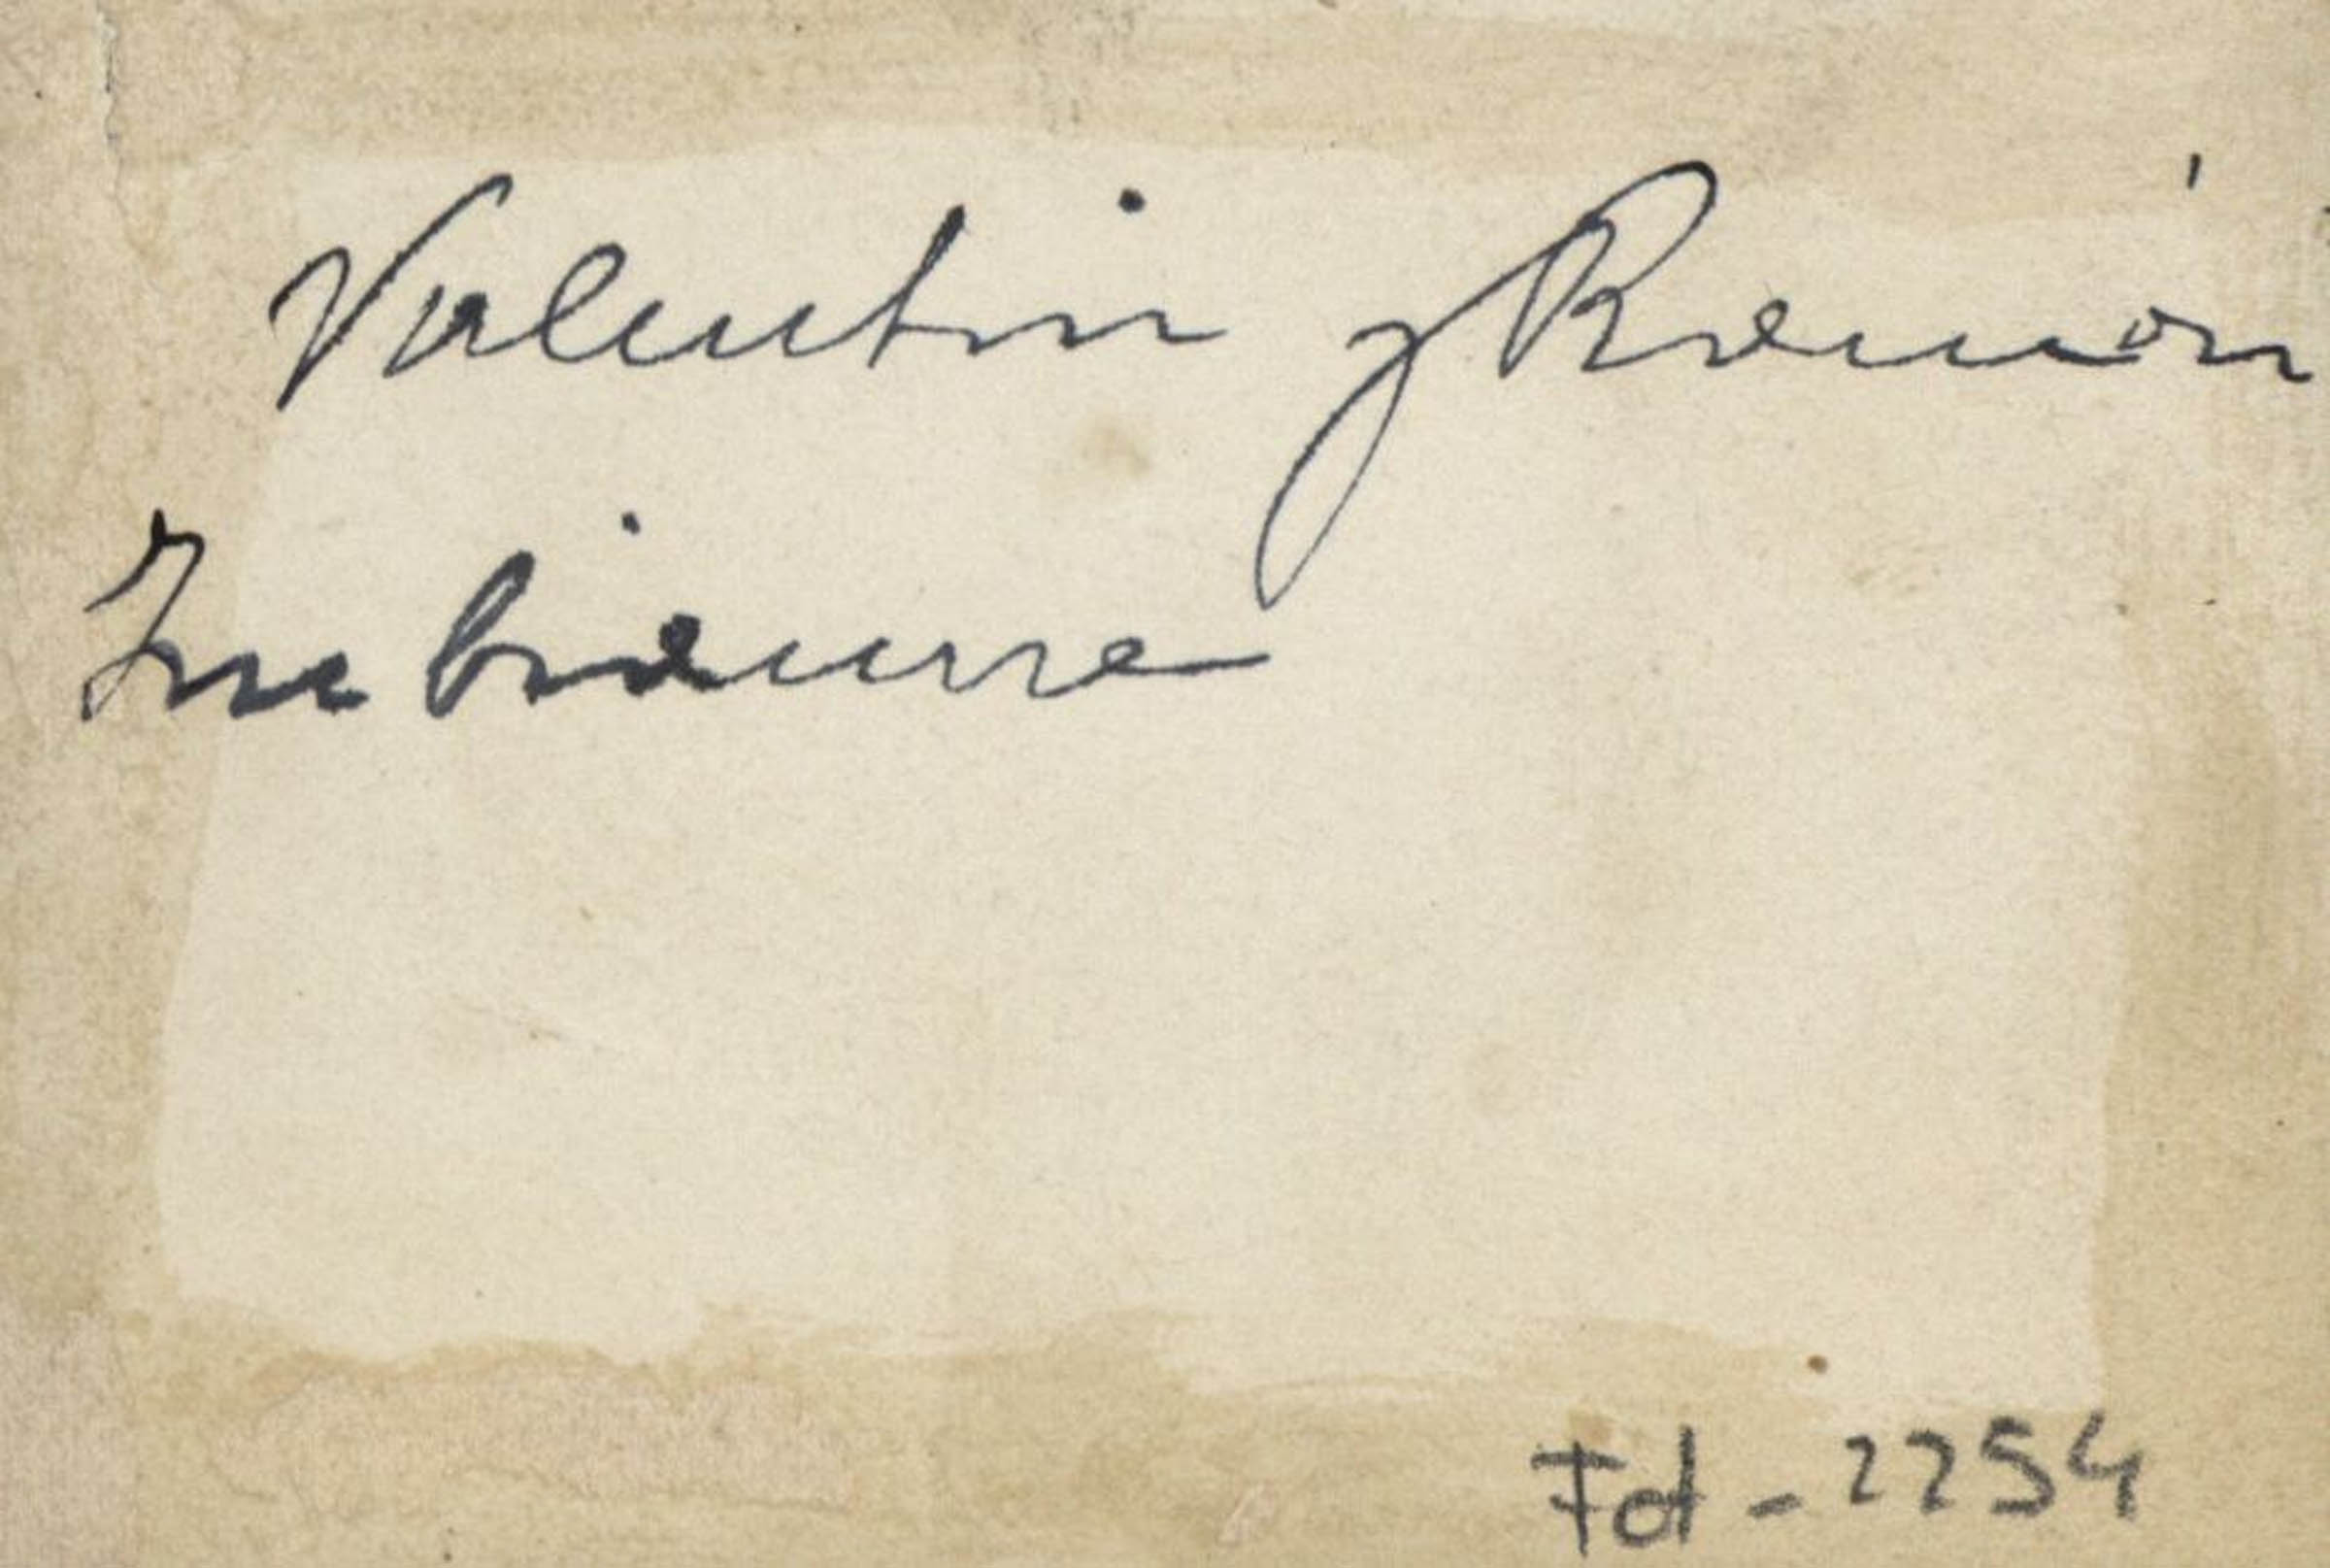 Valentin y Ramón
Zubiaurre
Fot - 2254